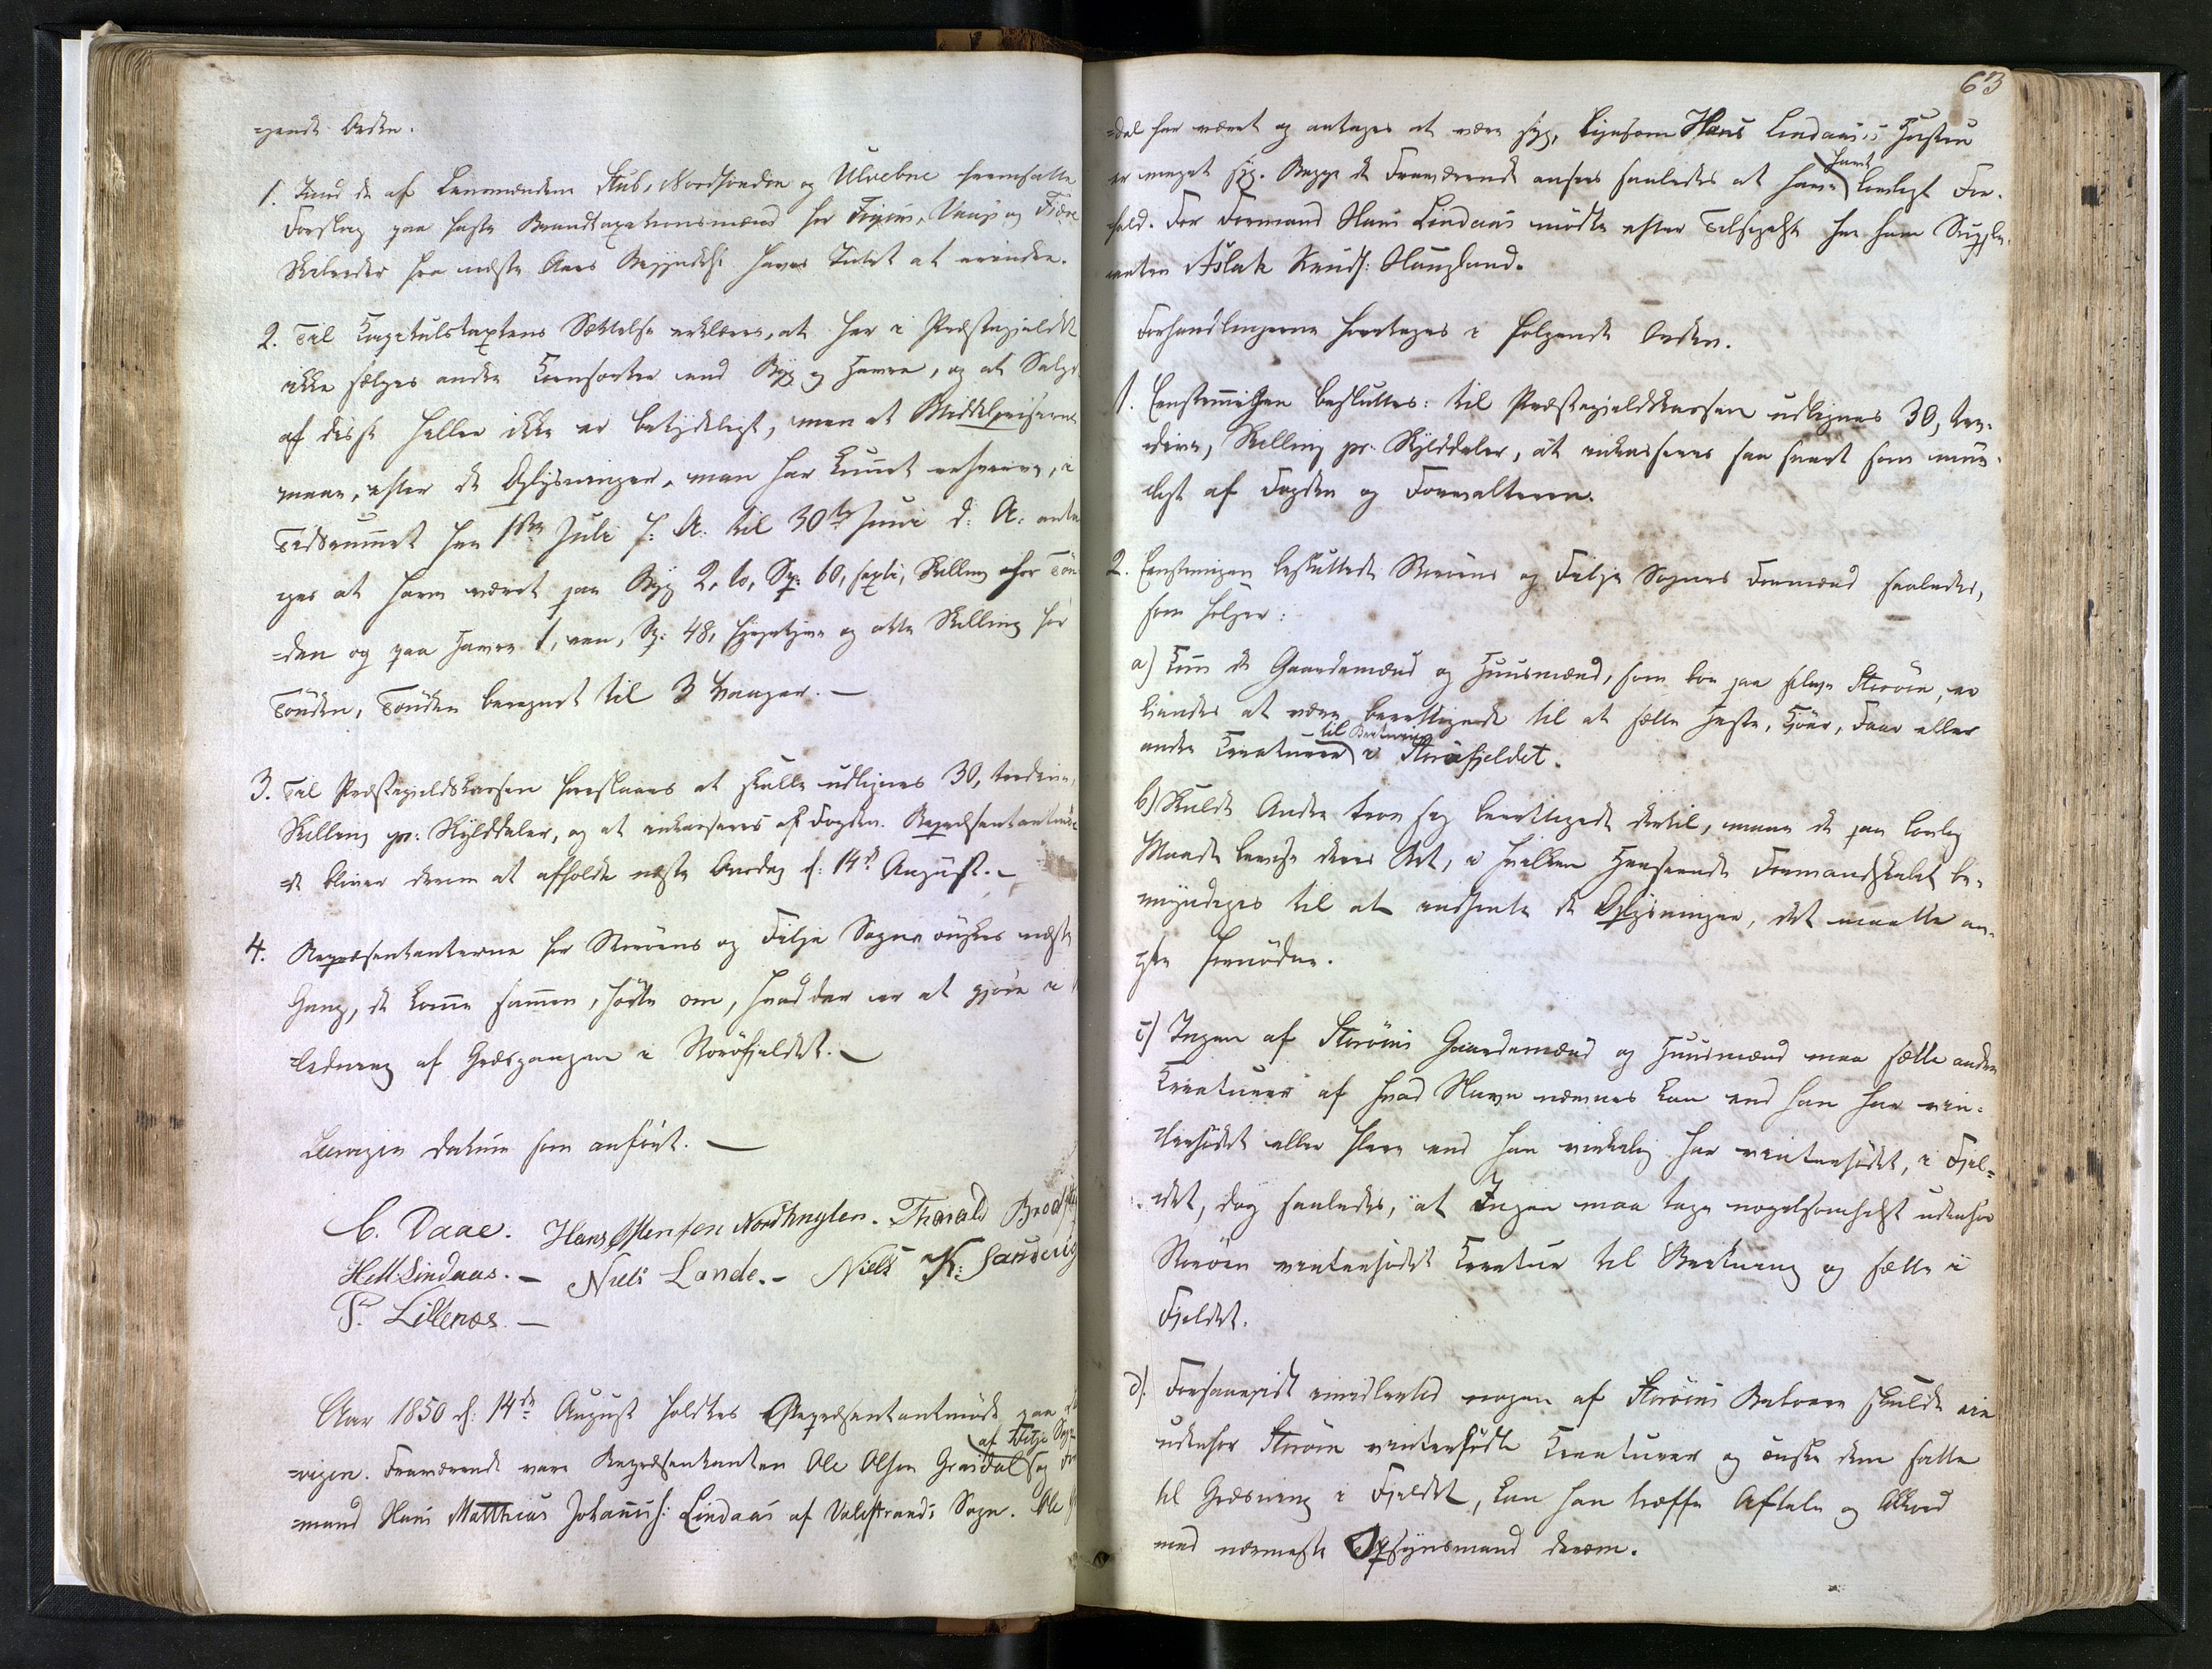 =gende Orden.
1. Imod de af Lensmændene Stub, Nordhindøe og Ulvebne fremsatte
Forslag paa faste Brandtaxationsmænd for Finnes, Vaags og Fiære
Skibreder fra næste Aars Begyndelse haves Intet at erindre.
2. Til Capitulstaxtens Sættelse erklæres, at her i Præstegjeldet
ikke sælges andre Kornsorter end Byg og Havre, og at Salget
af disse heller ikke er betydeligt, men at Middelpriserne
maae, efter de Oplysninger, man har kunnet erhverve, i
Tidsrummet fra 1ste Juli f: A: til 30te Juni d: A: anta
ges at have været paa Byg 2, to, Sp: 60, sexti, Skilling for Tøn
=den og paa Havre 1, een, Sp: 48, fyrretyve og otte Skilling for
Tønden, Tønden beregnet til 3 Vaager. —
3. Til Præstegjeldskassen foreslaaes at skulle udlignes 30, tredive,
Skilling pr: Skylddaler, og at inkasseres af Fogden. Repræsentantmø
=de bliver derom at afholde næste Onsdag d: 14de August. —
4. Repræsentanterne for Storøens og Fitje Sogne ønskes næste
Gang, de komme sammen, hørte om, hvad der er at gjøre i
=ledning af Græsgangen i Storøfjeldet. —
Lervigen Datum som anført. —
C. Daae. Hans Østensen Nordhuglen. Thorald Brods
HMLindaas. — Niels Lande. — Niels K: Sandvig
P. Lillenæs. —
Aar 1850 d: 14de August holdtes Repræsentantmøde paa
af Fitje Sogn
=vigen. Fraværende vare Repræsentanten Ole Olsen Grasdal og For
=mand Hans Matthias Johanness: Lindaas af Valestrands Sogn. Ole
63
=dal har været og antages at være syg, ligesom Hans Lindaas's Hustru
havt
er meget syg. Begge de Fraværende ansees saaledes at have lovligt For-
fald. For Formand Hans Lindaas mødte efter Tilsigelse fra ham Supple-
anten Aslak Knuds: Haugland.
Forhandlingerne foretoges i følgende Orden.
1. Eenstemmigen besluttes: til Præstegjeldskassen udlignes 30, tre-
dive, Skilling pr. Skylddaler, at inkasseres saa snart som mue-
ligt af Fogden og Forvalteren.
2. Eenstemmigen besluttede Storøens og Fitje Sognes Formænd saaledes,
som følger:
a) Kun de Gaardemænd og Huusmænd, som boe paa selve Storøen, er
kiendes at være berettigede til at sætte Heste, Kjøer, Faar eller
til Beitning
andre Creaturer i Storøfjeldet.
b) Skulde Andre troe sig berettigede dertil, maae de paa lovlig
Maade bevise deres Ret, i hvilken Henseende Formandskabet be-
myndiges til at indhente de Oplysninger, det maatte an-
see fornødne.
c) Ingen af Storøens Gaardemænd og Huusmænd maa sætte andre
Creaturer af hvad Navn nævnes kan end han har vin-
terfødet eller flere end han virkelig har vinterfødet, i Fjel-
det, dog saaledes, at Ingen maa tage nogetsomhelst udenfor
Storøen vinterfødet Creatur til Beitning og sætte i
Fjeldet.
d) Forsaavidt imidlertid nogen af Storøens Beboere skulde eie
udenfor Storøen vinterfødte Creaturer og ønske dem satte
til Græsning i Fjeldet, kan han træffe Aftale og Akkord
med nærmeste Opsynsmand derom.